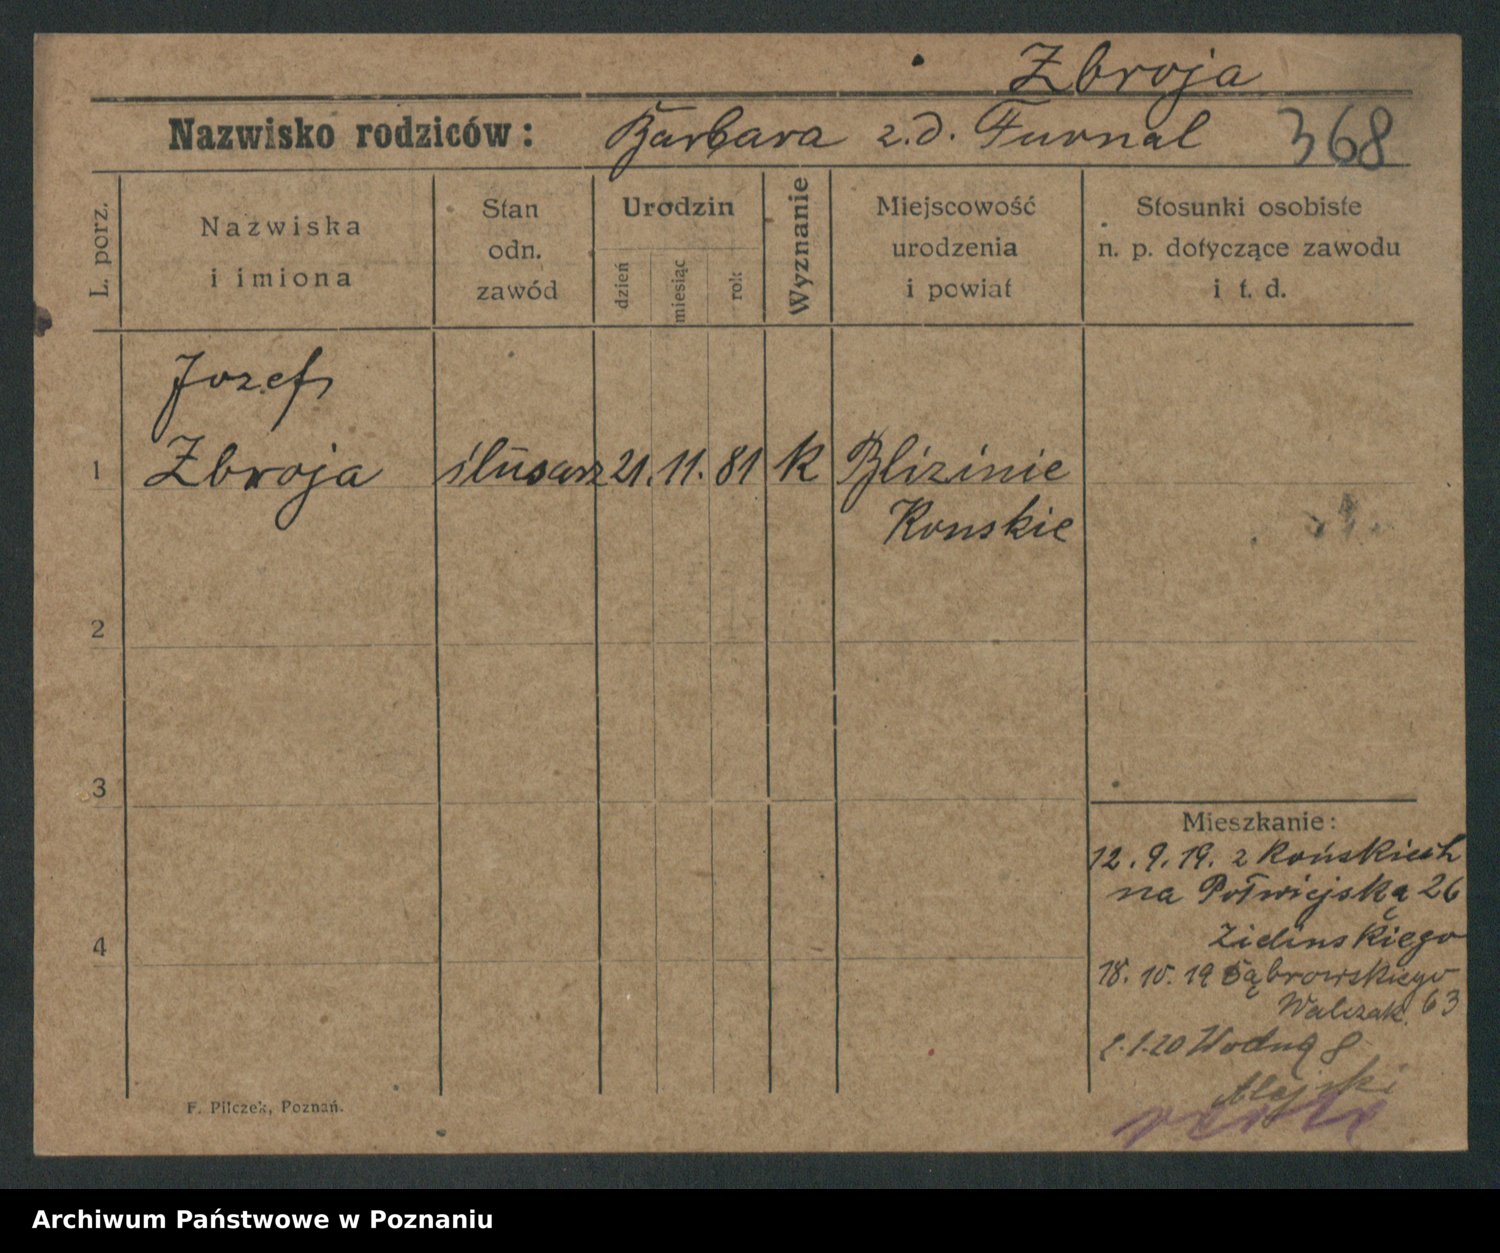 Zbroja
Nazwisko rodziców: Barbara z.d. Furnal 368
L. porz.
Nazwiska
i imiona
Stan
odn.
zawód
Urodzin
dzień
miesiąc
rok
Wyznanie
Miejscowość
urodzenia
i powiat
Stosunki osobiste
n. p. dotyczące zawodu
i t. d.
Jozef
1 Zbroja ślusarz 21. 11. 81 k Blizinie
Konskie
2
3
Mieszkanie:
12. 9. 19. z Końskiech
na Półwiejską 26
Zielinskiego
4
18. 10. 19 Dąbrowskiego
Walczak 63
2.1.20 Wodną 8
Alejski
F. Pilczek, Poznań.
Archiwum Państwowe w Poznaniu